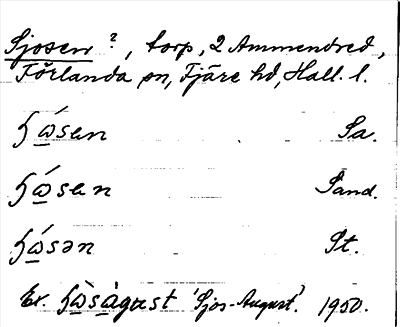 Sjosen ?, torp, 2 Ammendred,
Förlanda sn, Fjäre hd, Hall. l.
ɧɷ́sen Sa.
ɧɷ́sen Sand.
ɧɷ́sən St.
Ex. ɧɷ̀sàgust 'Sjos-August'. 1950.